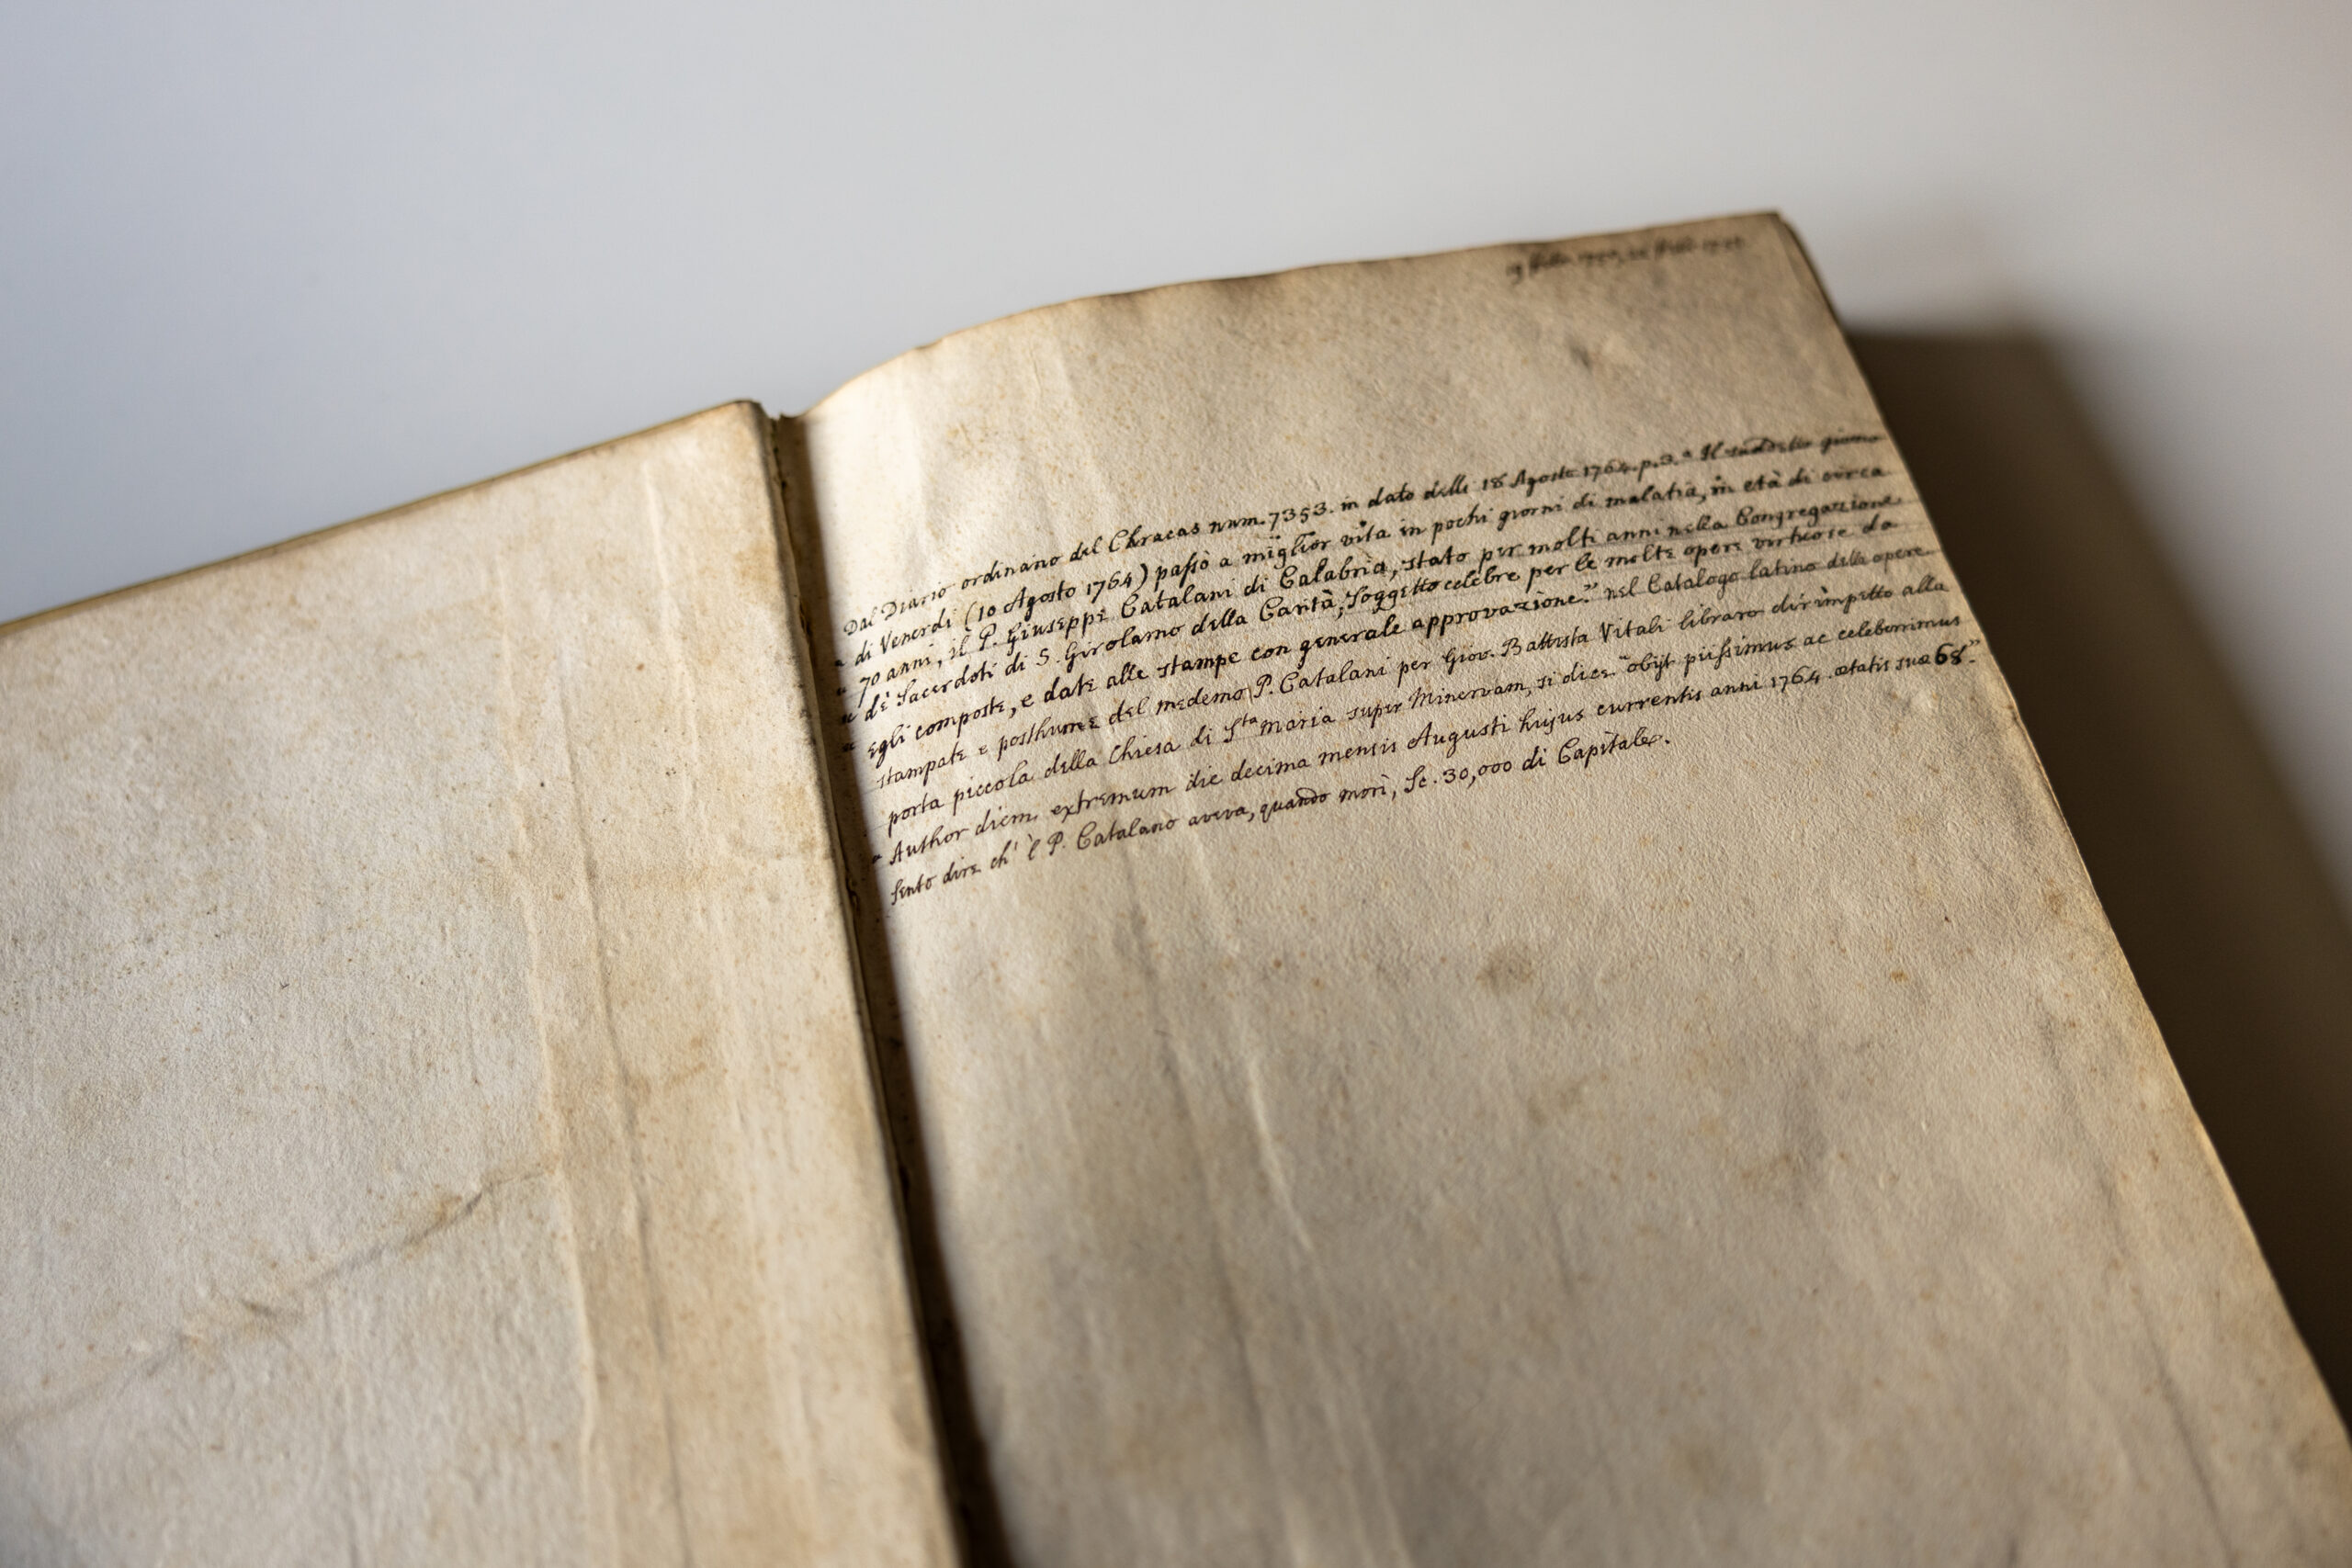 Dal Diario ordinario del Chracas num. 7353. in data delli 18 Agosto 1764. p. 3. " Il suddetto giorno
" di Venerdì (10 Agosto 1764) passò a miglior vita in pochi giorni di malatia, in età di circa
" 70 anni, il P. Giuseppe Catalani di Calabria, stato per molti anni nella Congregazione
" de' Sacerdoti di S. Girolamo della Carità, Soggetto celebre per le molte opere virtuose da
" egli composte, e date alle stampe con generale approvazione." nel Catalogo latino delle opere
stampate e posthume del medemo P. Catalani per Giov. Battista Vitali libraro dirimpetto alla
porta piccola della Chiesa di Sta Maria super Minervam, si dice "obijt piissimus ac celeberrimus
" Author diem extremum die decima mensis Augusti hujus currentis anni 1764. ætatis suæ 68."
Sento dire ch' il P. Catalano aveva, quando morì, Sc. 30,000 di Capitale.